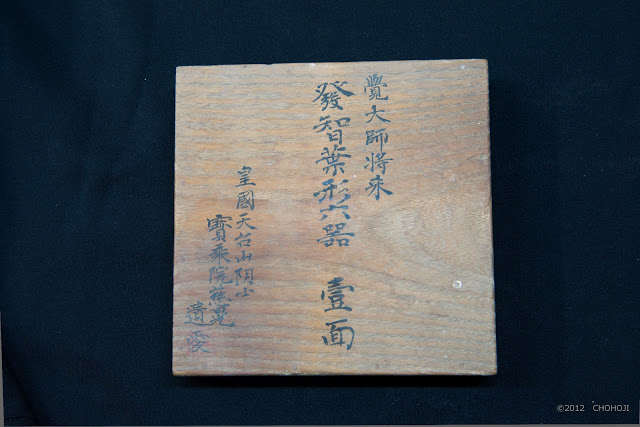 覺大師將来
發智葉形六器 壹面
皇國天台山陰士
寶乗院慈晃
遺愛
©2012 CHOHOJI